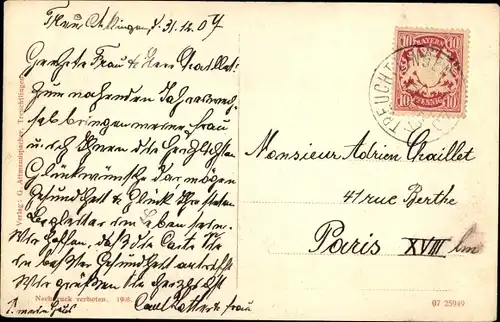 Treuchtlingen, d. 31.12.07
Geehrte Frau & Herr Chaillet!
Zum nahenden Jahreswech-
sel bringen meine Frau
u. ich Ihnen die herzlichsten
Glückwünsche dar mögen
Gesundheit & Glück Ihre steten
Begleiter im Leben sein.
Wir hoffen, daß die Carte Sie
in bester Gesundheit antrifft
Wir grüßen Sie herzlichst
Carl & Frau
1. mein Haus
Verlag: G. Treuchtlingen.
Nachdruck verboten. 1908.
BAYERN
10 10
10 PFENNIG 10
TREUCHTLINGEN
Monsieur Adrien Chaillet
41 rue Berthe
Paris XVIII
07 25949